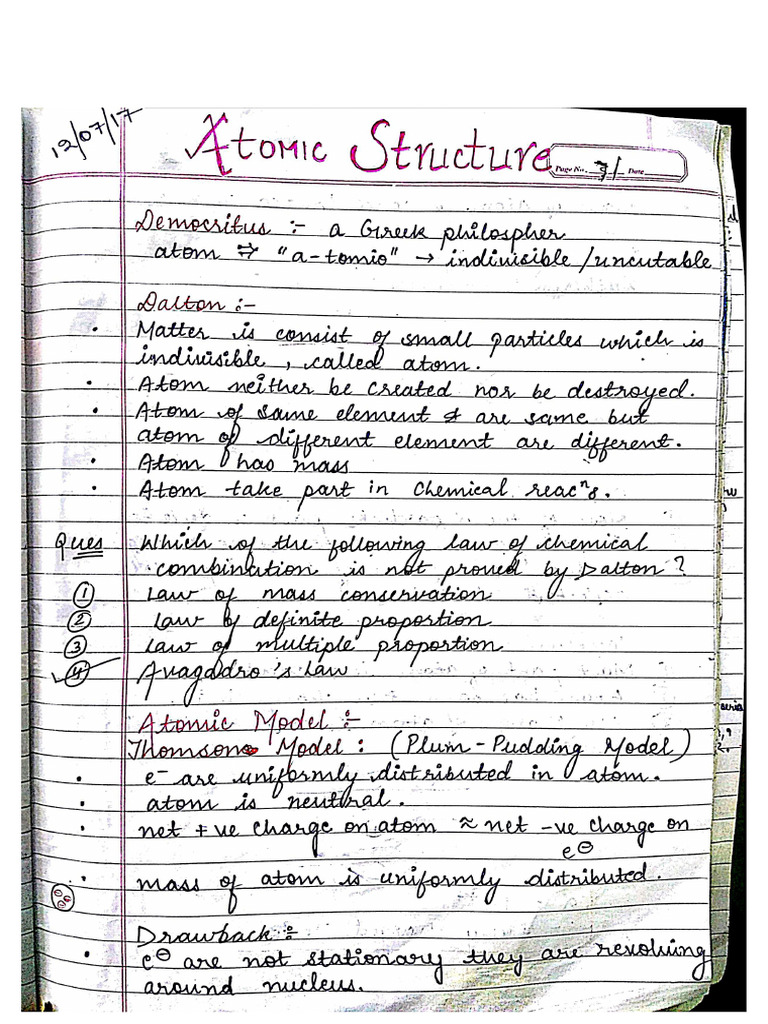 12/07/17
Atomic Structure
Page No. 71 Date
Democritus :- a Greek philospher
atom ⇒ "a-tomio" → indivisible/uncutable
Dalton :-
• Matter is consist of small particles which is
indivisible, called atom.
• Atom neither be created nor be destroyed.
• Atom of same element are same but
atom of different element are different.
• Atom has mass
• Atom take part in chemical reacⁿs.
Ques Which of the following law of chemical
combination is not proved by Dalton?
① Law of mass conservation
② Law of definite proportion
③ Law of multiple proportion
✓④ Avagadro's Law
Atomic Model :-
Thomson Model : (Plum-Pudding Model)
• e⁻ are uniformly distributed in atom.
• atom is neutral.
• net +ve charge on atom ≈ net -ve charge on
e⊖
• mass of atom is uniformly distributed.
Drawback :-
• e⊖ are not stationary they are revolving
around nucleus.